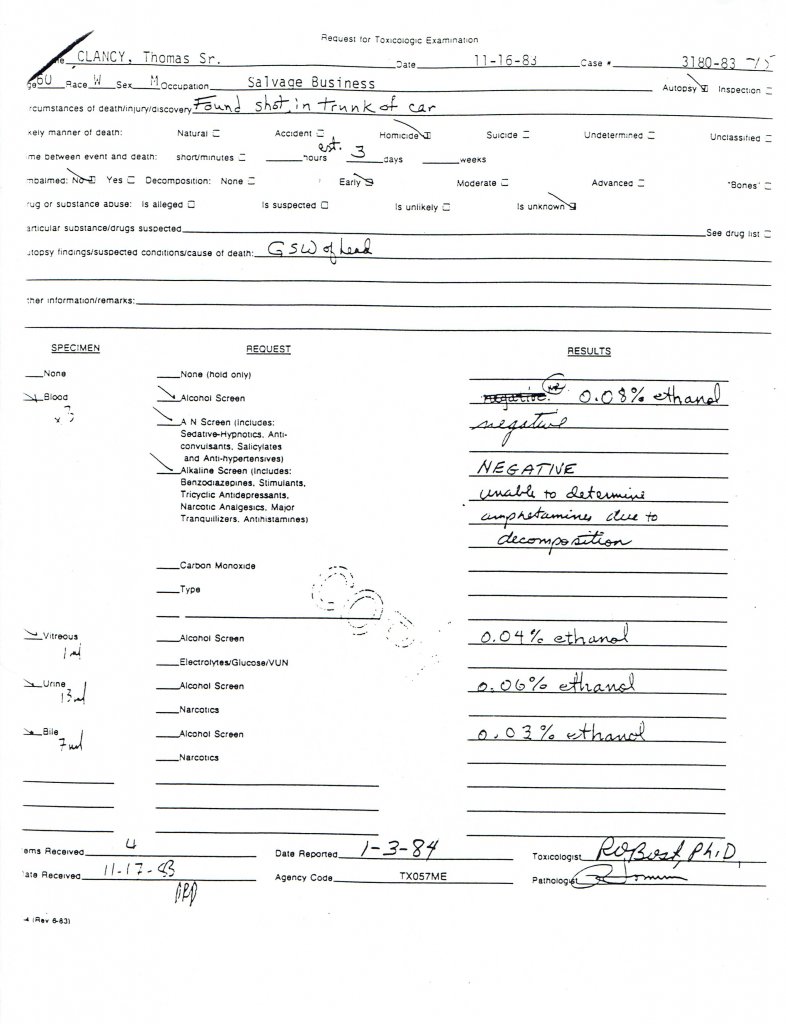 Request for Toxicologic Examination
me CLANCY, Thomas Sr. Date 11-16-83 Case # 3180-83
ge 60 Race W Sex M Occupation Salvage Business Autopsy Inspection
rcumstances of death/injury/discovery Found shot, in trunk of car
kely manner of death: Natural Accident Homicide Suicide Undetermined Unclassified
me between event and death: short/minutes hours est. 3 days weeks
mbalmed: No Yes Decomposition: None Early Moderate Advanced "Bones"
rug or substance abuse: Is alleged Is suspected Is unlikely Is unknown
articular substance/drugs suspected See drug list
utopsy findings/suspected conditions/cause of death: GSW of head
ther information/remarks:
SPECIMEN REQUEST RESULTS
None None (hold only)
Blood Alcohol Screen negative 0.08% ethanol
x 3 A N Screen (Includes: negative
Sedative-Hypnotics, Anti-
convulsants, Salicylates
and Anti-hypertensives)
Alkaline Screen (Includes: NEGATIVE
Benzodiazepines, Stimulants,
Tricyclic Antidepressants, unable to determine
Narcotic Analgesics, Major amphetamines due to
Tranquillizers, Antihistamines)
decomposition
Carbon Monoxide
Type
COPY
Vitreous Alcohol Screen 0.04% ethanol
1 ml
Electrolytes/Glucose/VUN
Urine Alcohol Screen 0.06% ethanol
13 ml
Narcotics
Bile Alcohol Screen 0.03% ethanol
7 ml
Narcotics
ems Received 4 Date Reported 1-3-84 Toxicologist RO Bost, Ph.D
ate Received 11-17-83 Agency Code TX057ME Pathologist
-4 (Rev 6-83)